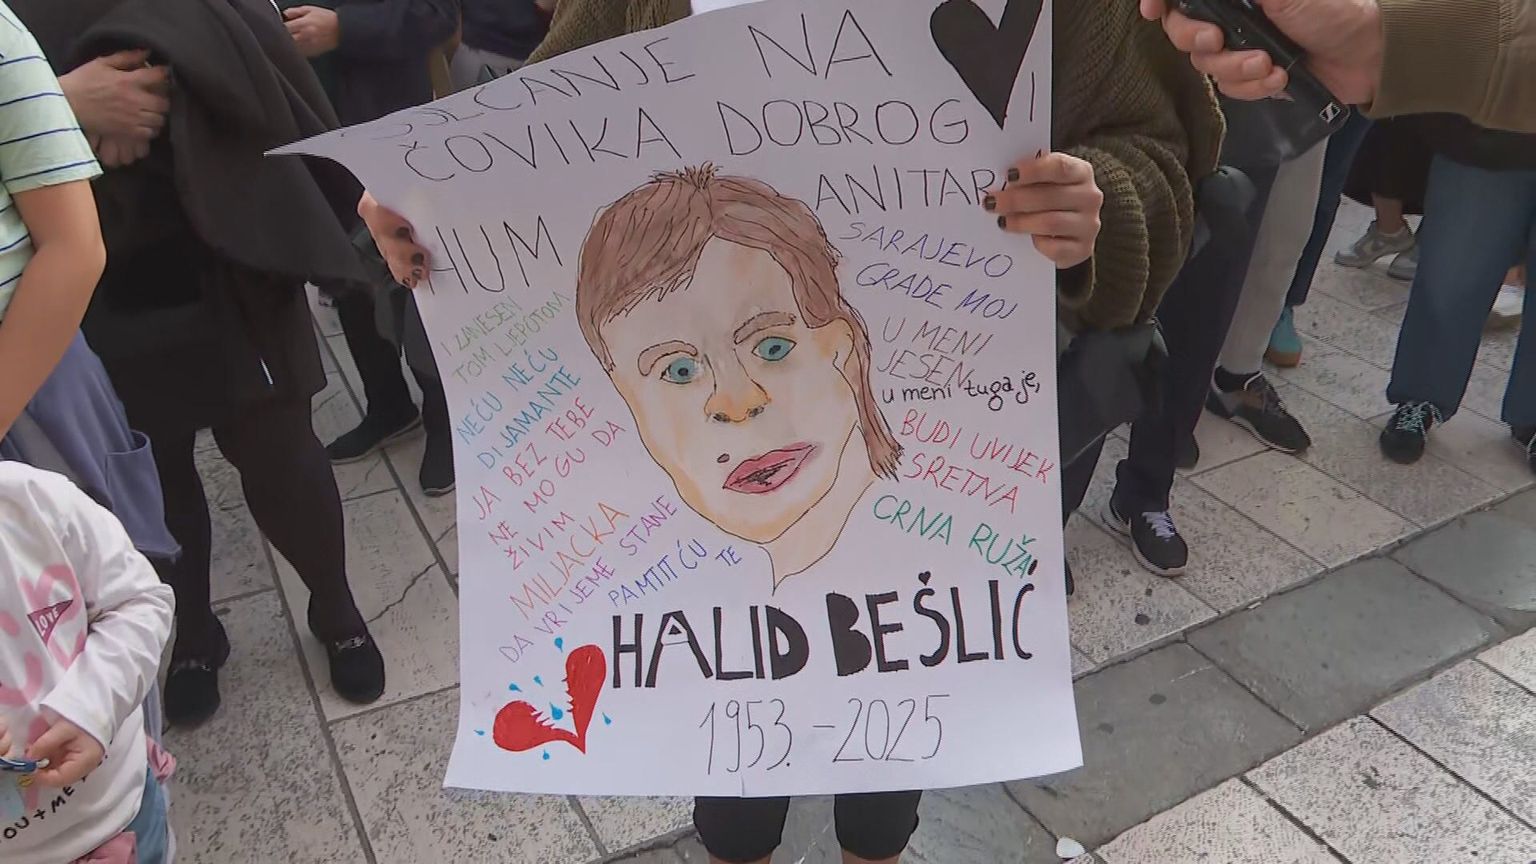 NA
ČOVIKA DOBROG I
HUM ANITAR
I ZANESENI
TOM LJEPOTOM
NEĆU NEĆU
DIJAMANTE
JA BEZ TEBE
NE MOGU DA
ŽIVIM
MILJACKA
DA VRIJEME STANE
PAMTIT ĆU TE
SARAJEVO
GRADE MOJ
U MENI
JESEN
u meni tuga je,
BUDI UVIJEK
SRETNA
CRNA RUŽA
HALID BEŠLIĆ
1953. - 2025
LOVE